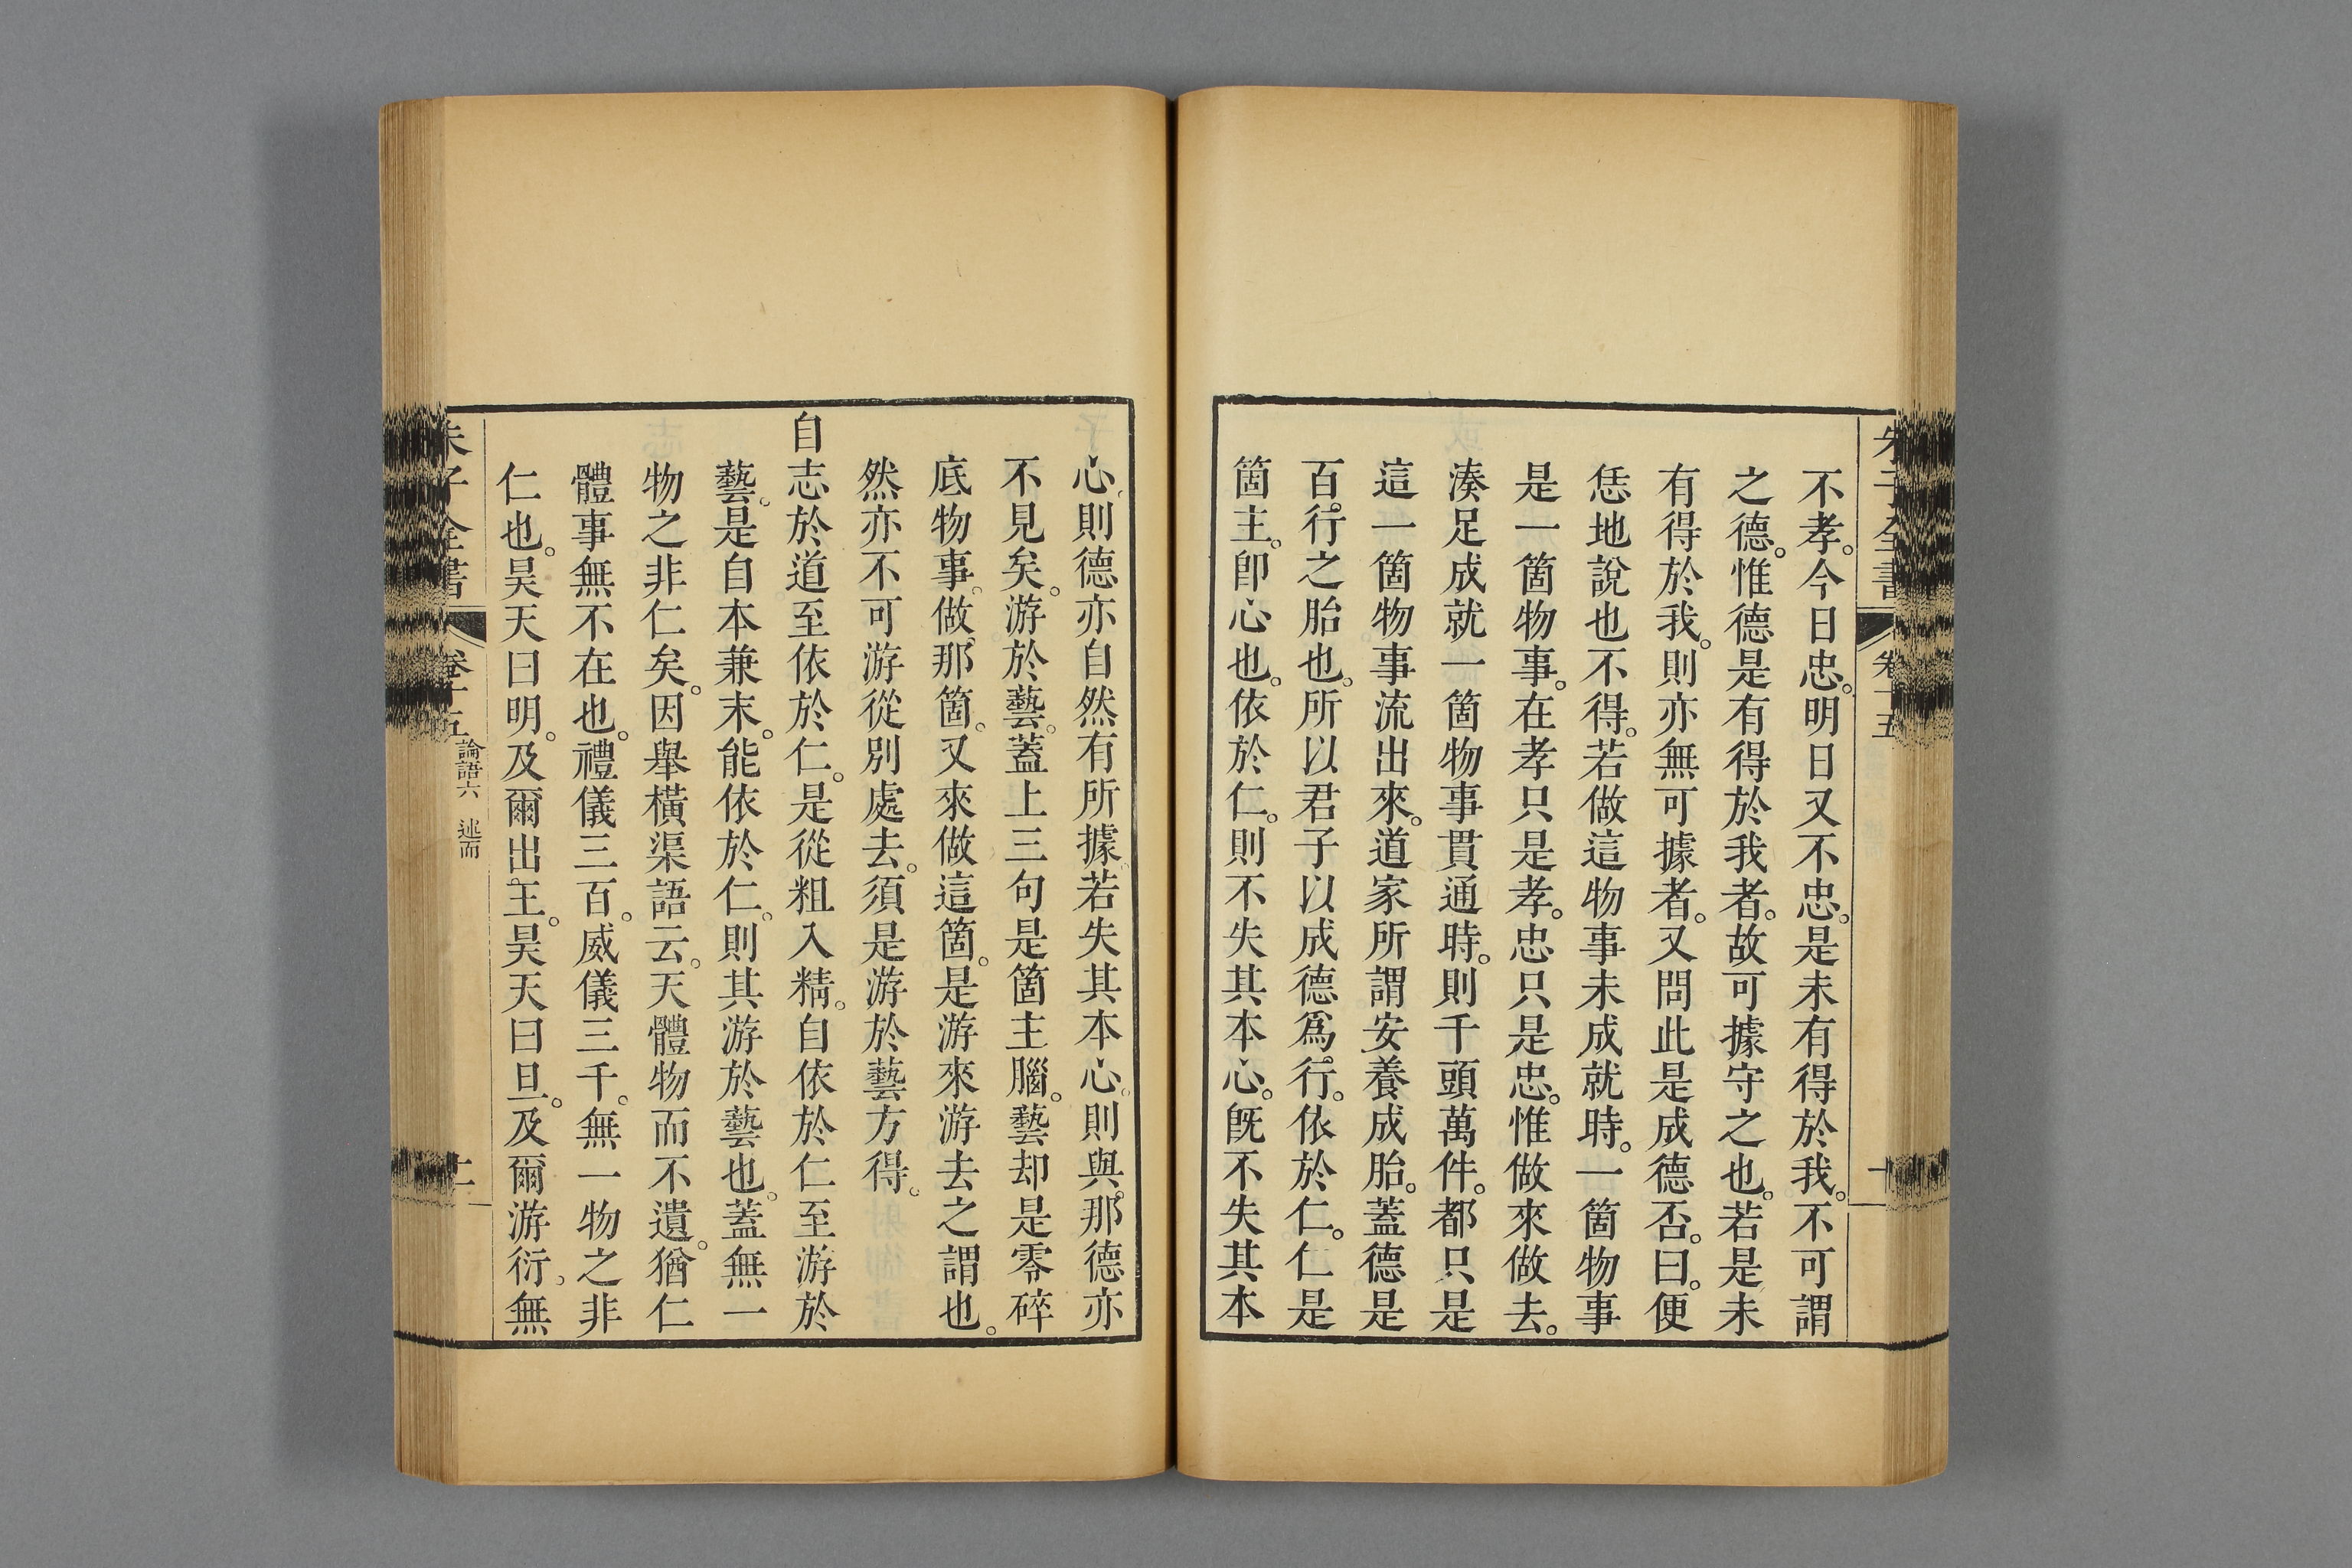 朱子全書 卷十五
不孝。今日忠。明日又不忠。是未有得於我。不可謂
之德。惟德是有得於我者。故可據守之也。若是未
有得於我。則亦無可據者。又問此是成德否。曰。便
恁地說也不得。若做這物事未成就時。一箇物事
是一箇物事。在孝只是孝。忠只是忠。惟做來做去。
湊足成就一箇物事貫通時。則千頭萬件。都只是
這一箇物事流出來。道家所謂安養成胎。蓋德是
百。行之胎也。所以君子以成德爲。行。依於仁。仁是
箇主。卽心也。依於仁。則不失其本心。旣不失其本
心。則德亦自然有所據。若失其本心。則與。那德亦
不見矣。游於藝。蓋上三句是箇主腦。藝却是零碎
底物事。做那箇。又來做這箇。是游來游去之謂也。
然亦不可游從別處去。須是游於藝方得。
自志於道至依於仁。是從粗入精。自依於仁至游於
藝。是自本兼末。能依於仁。則其游於藝也。蓋無一
物之非仁矣。因舉橫渠語云。天體物而不遺。猶仁
體事無不在也。禮儀三百。威儀三千。無一物之非
仁也。昊天曰明。及爾出。王。昊天曰旦。及爾游衍。無
朱子全書 卷十五 論語六 述而